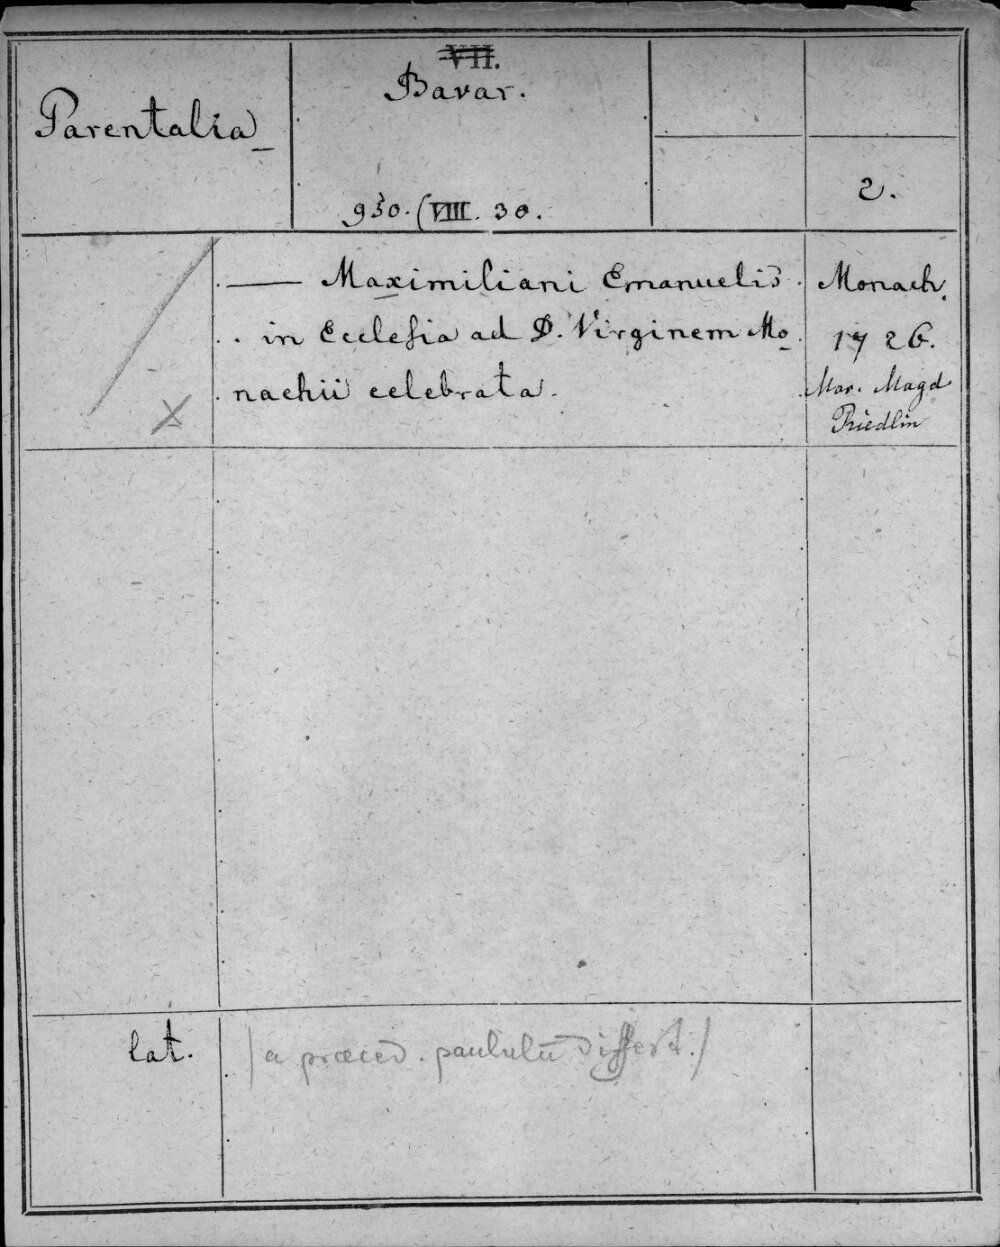 VII.
Bavar.
Parentalia
2.
930. (VIII. 30.
— Maximiliani Emanuelis
.. in Ecclesia ad D. Virginem Mo
nachii celebrata.
Monach.
1726.
Mar. Magd
Riedlin
lat.
(a præced. paululū differt.)